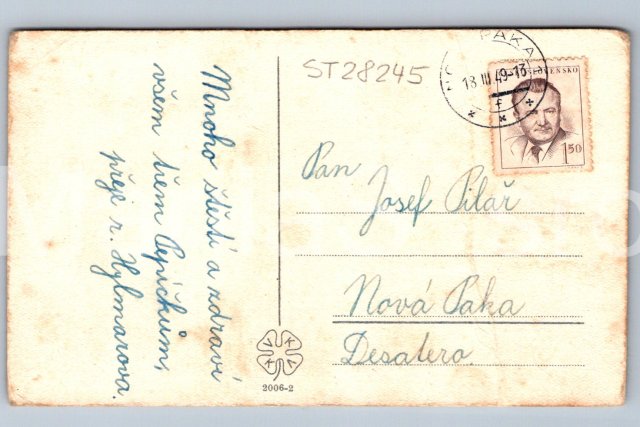 Mnoho štěstí a zdraví
všem třem Pepíčkům,
přeje r. Hylmarova.
ST28245
PAKA
18.III.49-13
f
SLOVENSKO
1.50
Pan
Josef Pilař
Nová Paka
Desatero
2006-2